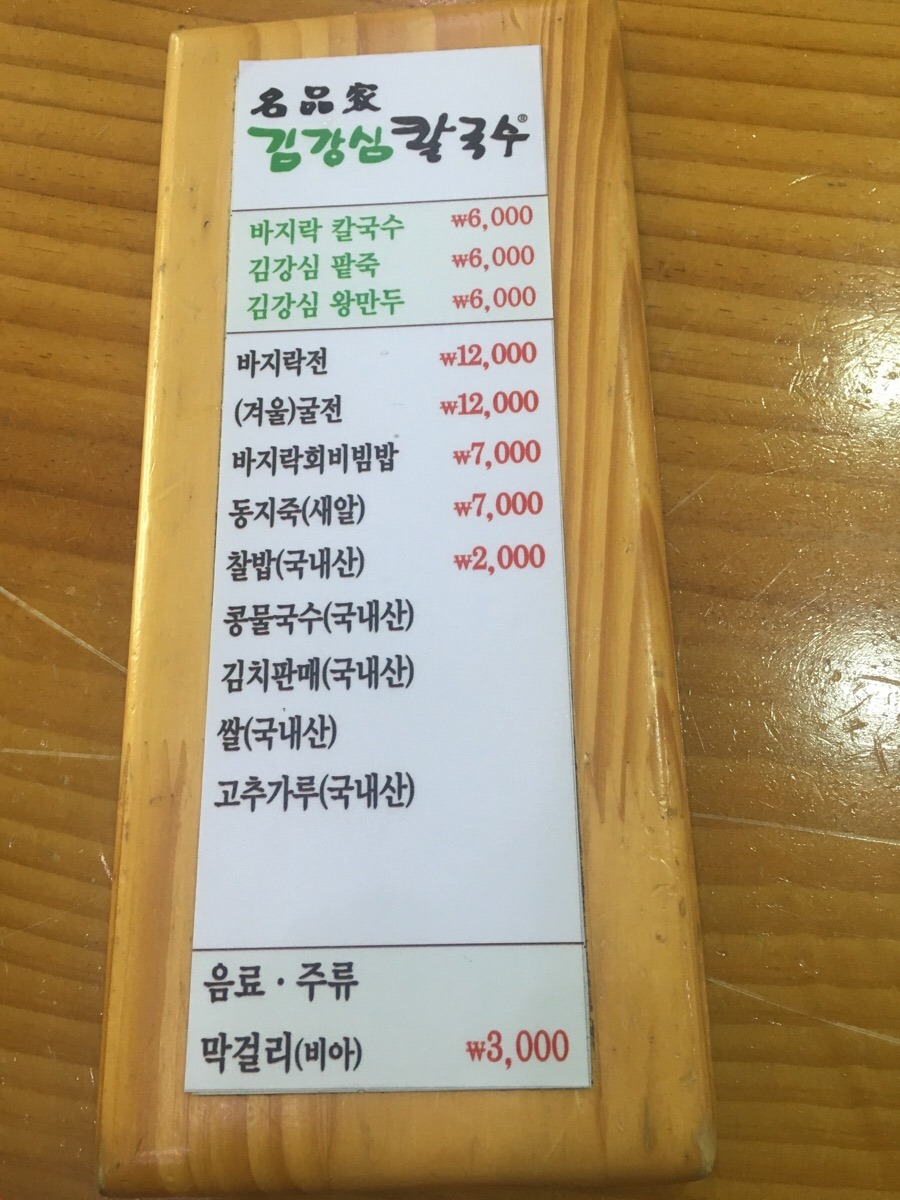 名品家
김강심칼국수®
바지락 칼국수 ₩6,000
김강심 팥죽 ₩6,000
김강심 왕만두 ₩6,000
바지락전 ₩12,000
(겨울)굴전 ₩12,000
바지락회비빔밥 ₩7,000
동지죽(새알) ₩7,000
찰밥(국내산) ₩2,000
콩물국수(국내산)
김치판매(국내산)
쌀(국내산)
고추가루(국내산)
음료 · 주류
막걸리(비아) ₩3,000